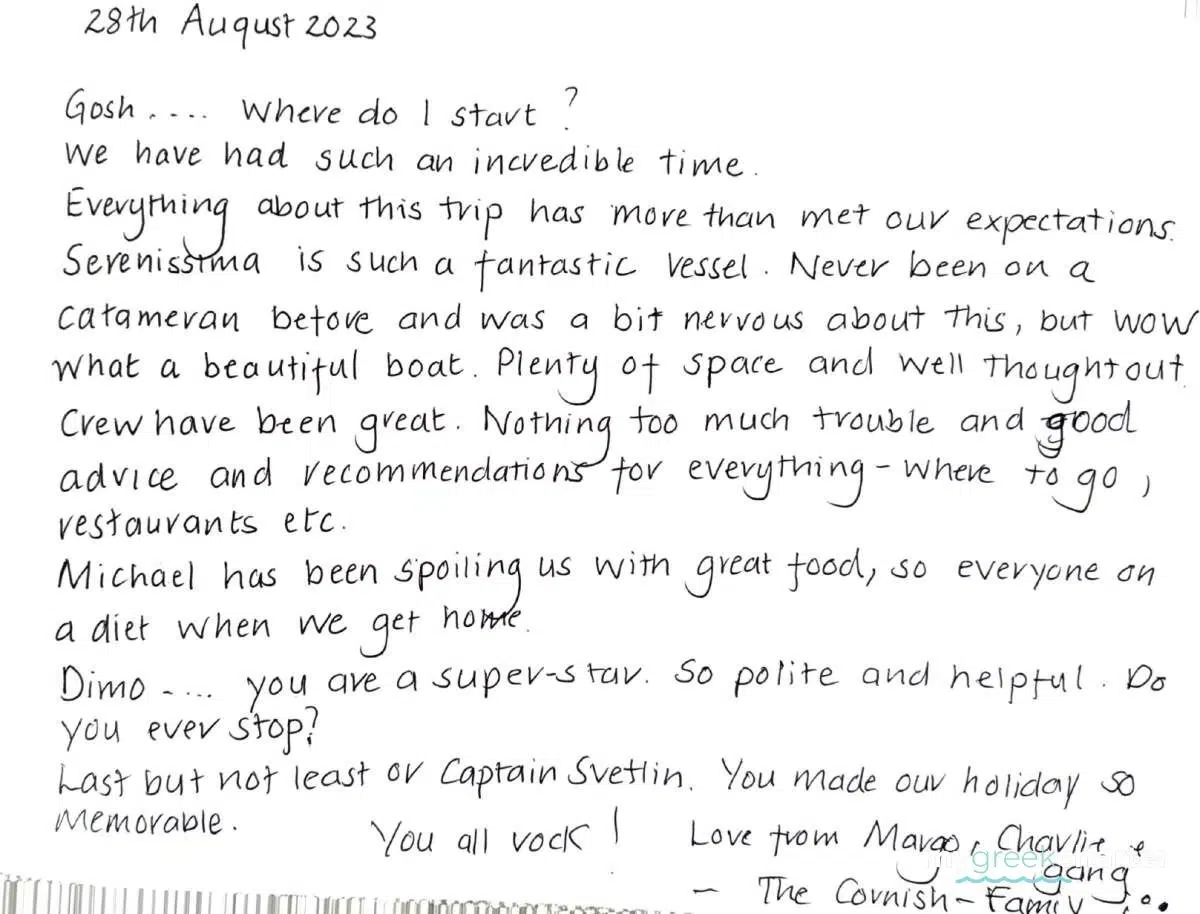 28th August 2023
Gosh..... Where do I start?
We have had such an incredible time.
Everything about this trip has more than met our expectations.
Serenissima is such a fantastic vessel. Never been on a
catameran before and was a bit nervous about this, but wow
what a beautiful boat. Plenty of space and well thought out.
Crew have been great. Nothing too much trouble and good
advice and recommendations for everything - where to go,
restaurants etc.
Michael has been spoiling us with great food, so everyone on
a diet when we get home.
Dimo .... you are a super-star. So polite and helpful. Do
you ever stop?
Last but not least or Captain Svetlin. You made our holiday so
memorable.
You all rock! Love from Margo, Charlie +
gang
greek
- The Cornish-Family